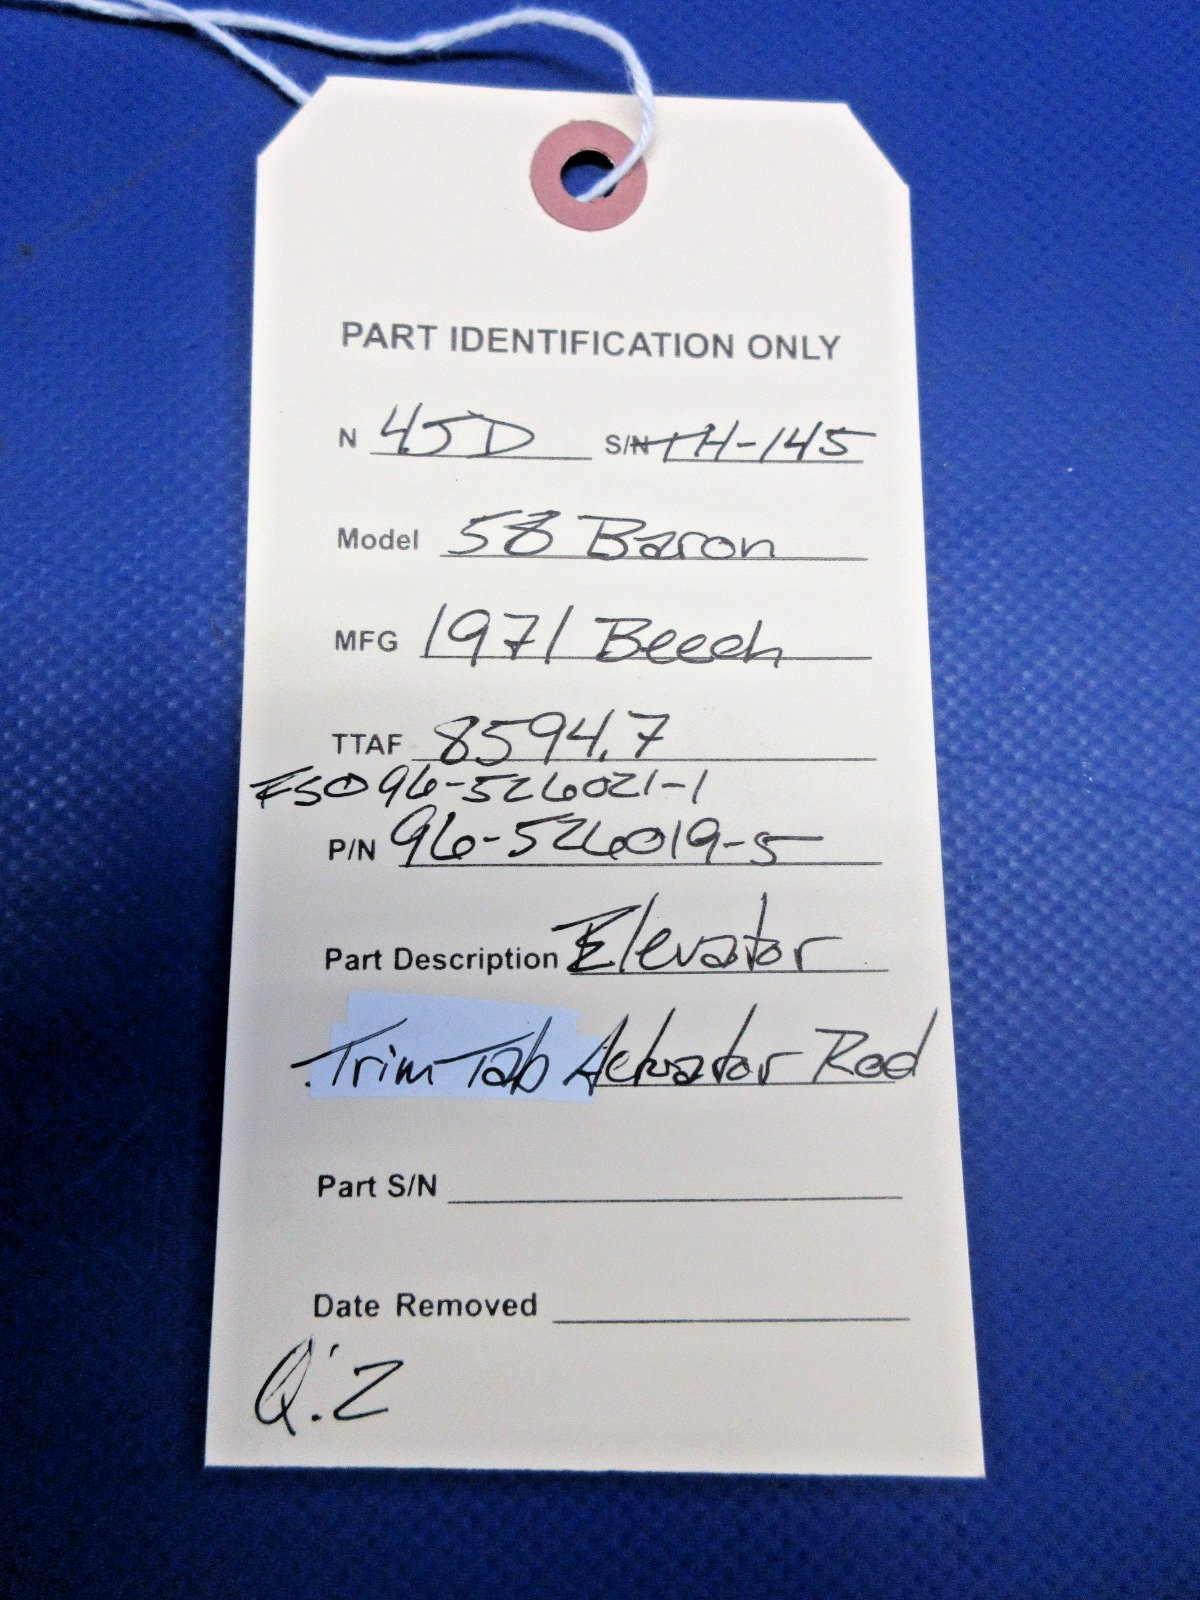 PART IDENTIFICATION ONLY
N 45D S/N TH-145
Model 58 Baron
MFG 1971 Beech
TTAF 8594.7
FSO 96-526021-1
P/N 96-526019-5
Part Description Elevator
Trim Tab Actuator Rod
Part S/N
Date Removed
Q:2